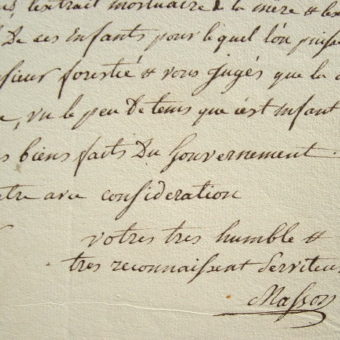 l'extrait mortuaire & la mère & les
De ces Enfants pour lequel l'on puisse
sieur forestié & vous jugés que la
, vu le peu de tems que c'est infant
biens faits Du Gouvernement.
tre avec consideration
votres tres humble &
tres reconnaissent Serviteur
Masson